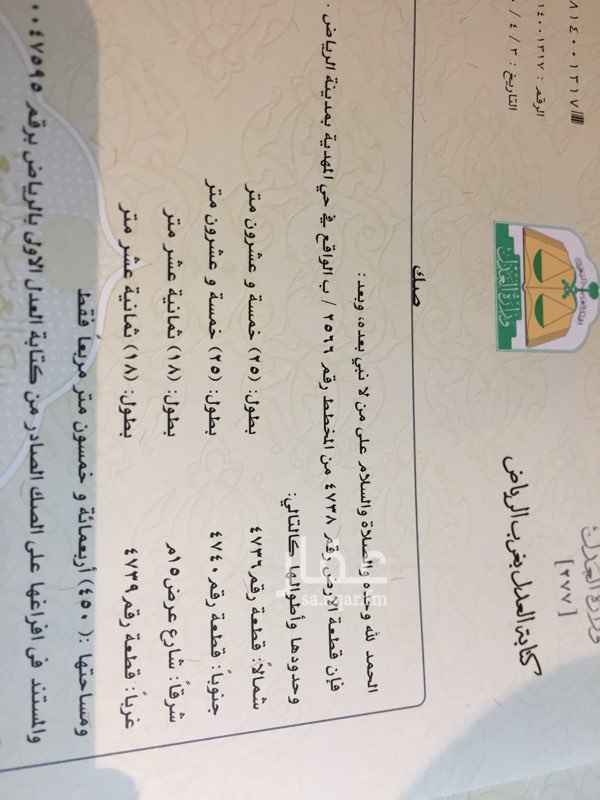 وزارة العدل
[٢٧٧]
كتابة العدل بغرب الرياض
وزارة العدل
الرقم : ١٤٠٠١٣١٧
التاريخ : ٣ / ٤ /
صك
الحمد لله وحده والصلاة والسلام على من لا نبي بعده، وبعد:
فإن قطعة الارض رقم ٤٧٣٨ من المخطط رقم ٢٥٦٦ / ب الواقع في حي المهدية بمدينة الرياض .
وحدودها وأطوالها كالتالي:
شمالاً: قطعة رقم ٤٧٣٦ بطول: (٢٥) خمسة و عشرون متر
جنوباً: قطعة رقم ٤٧٤٠ بطول: (٢٥) خمسة و عشرون متر
شرقاً: شارع عرض ١٥م بطول: (١٨) ثمانية عشر متر
غرباً: قطعة رقم ٤٧٣٩ بطول: (١٨) ثمانية عشر متر
ومساحتها :( ٤٥٠) أربعمائة و خمسون متر مربعاً فقط
والمستند في افراغها على الصك الصادر من كتابة العدل الاولى بالرياض برقم ٤٧٥٩٥
عقار
sa.aqar.fm